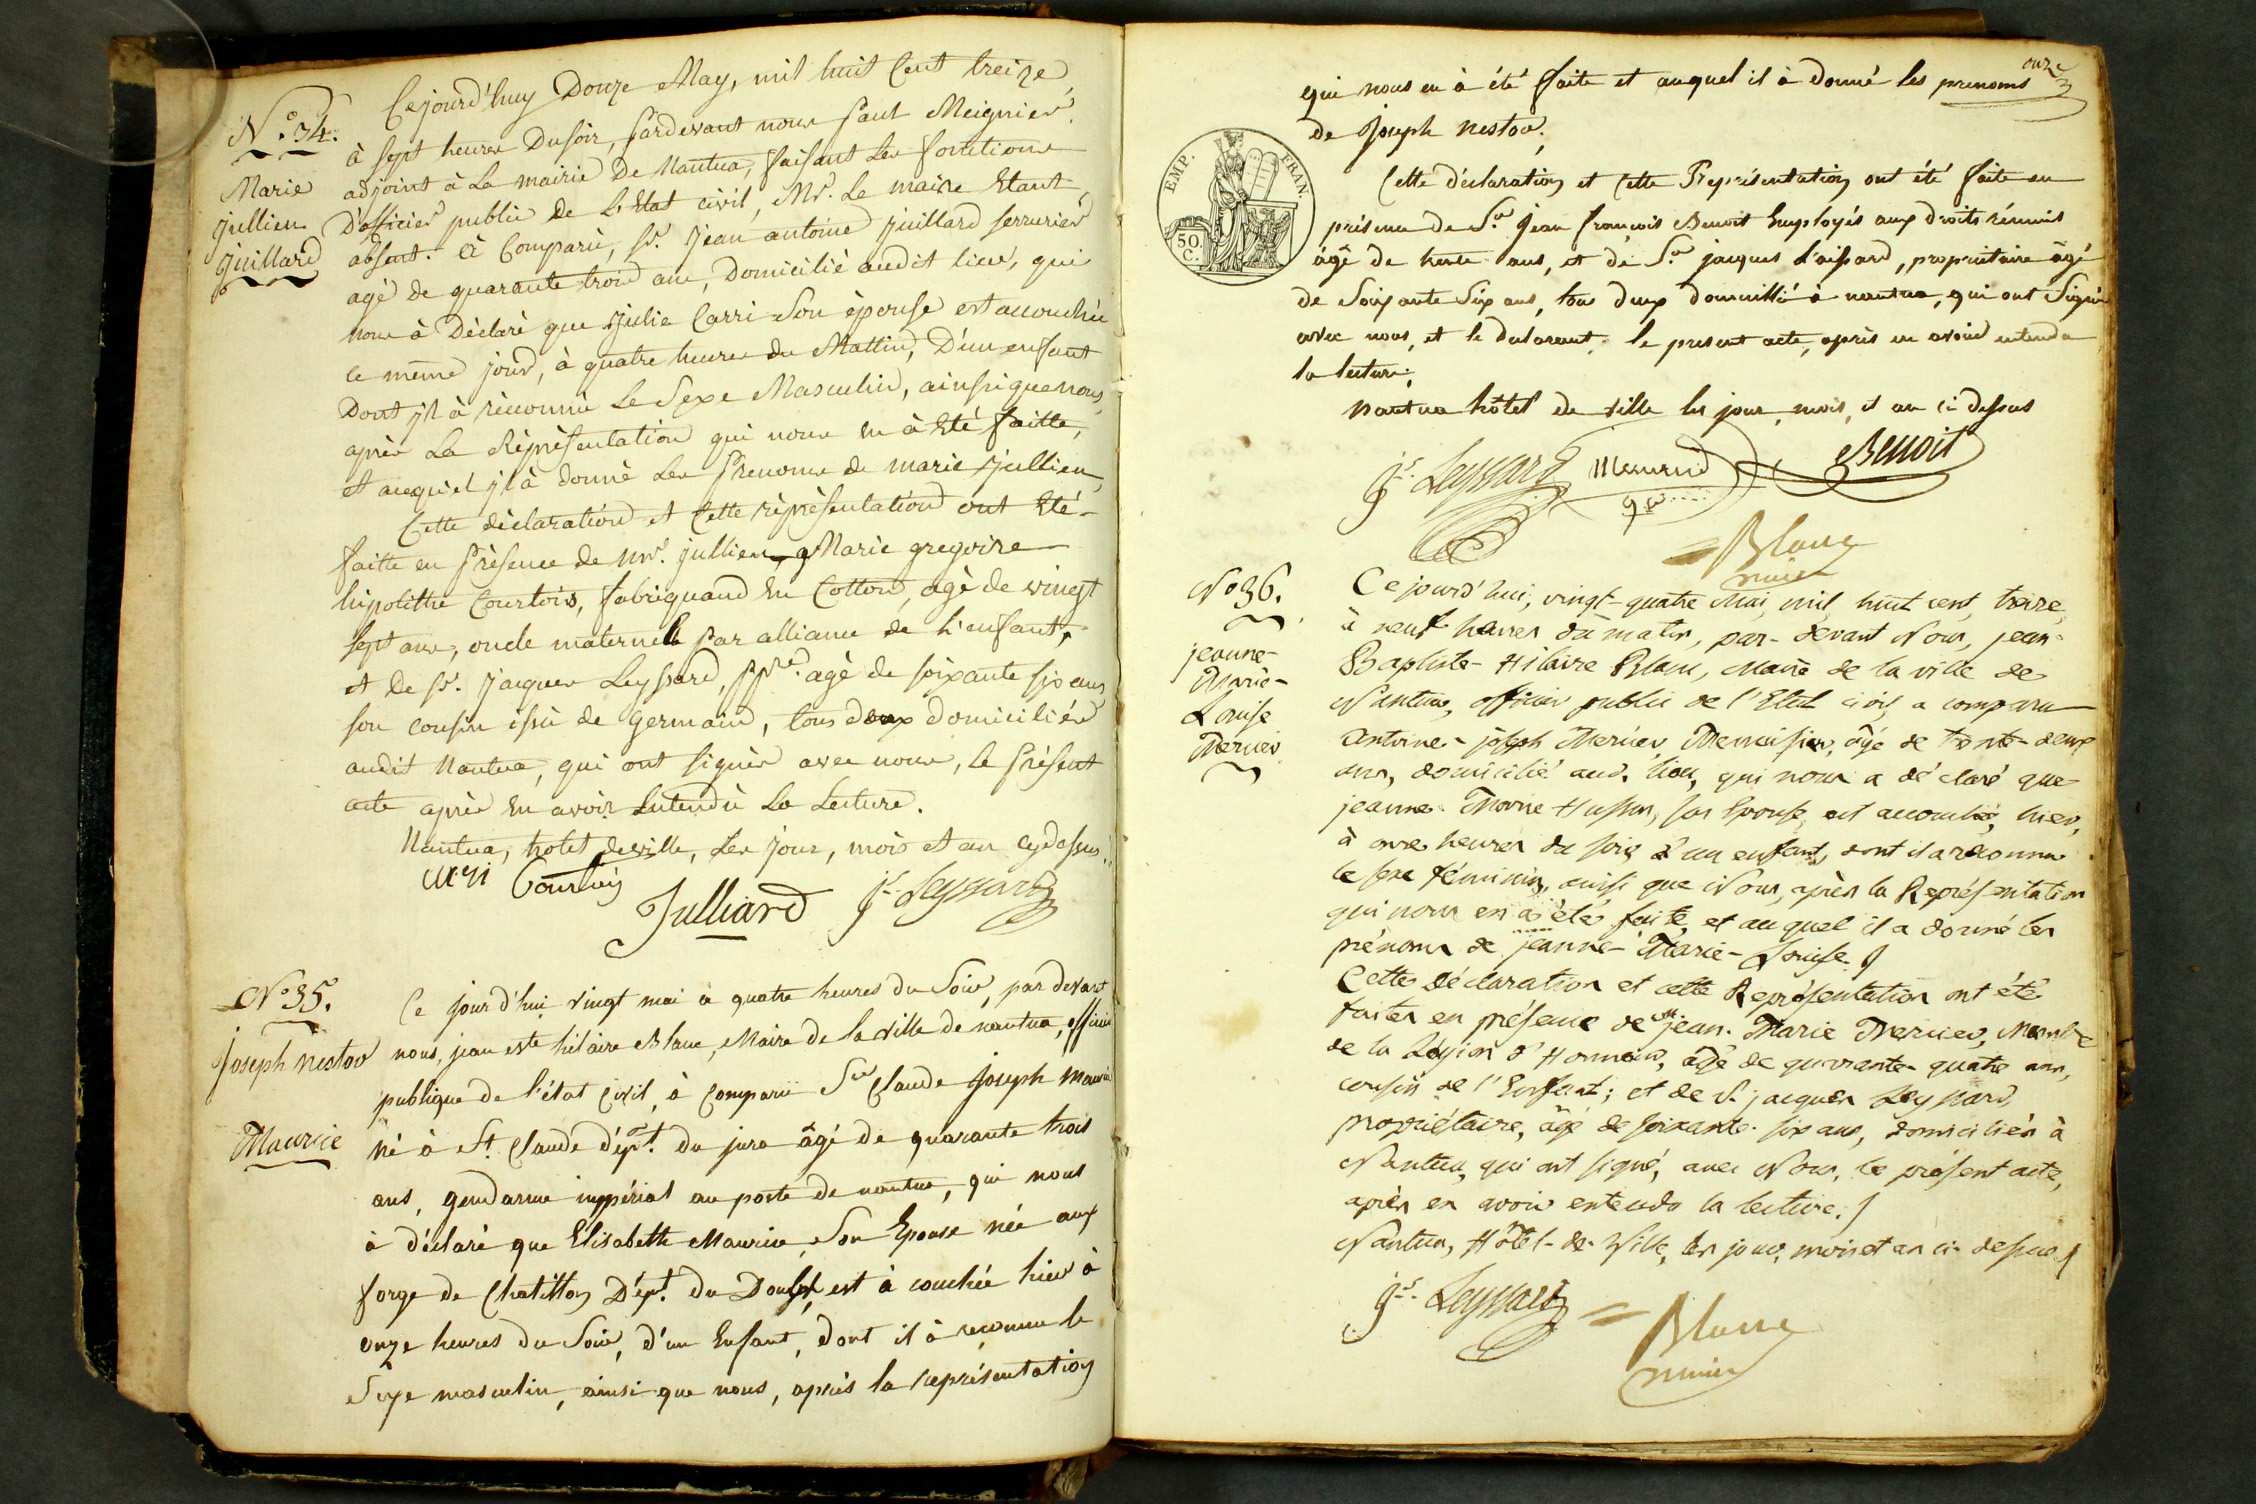 N.º 34.
Marie
jullien
juillard
Cejourd'huy Douze May, mil huit Cent treize,
à sept heures Dusoir, pardevant nous paul Meignier,
adjoint à La mairie De Nantua, faisant Les fonctions
D'officier public De L'Etat civil, Mr. Le maire Etant
absent. à Comparù, sr. Jean antoine juillard serrurier
agé de quarante trois ans, Domicilié audit lieu, qui
nous à Déclaré que julie Carri Son épouse est accouchée
ce même jour, à quatre heures du Mattin, D'un enfant
Dont jl à réconnù Le Sexe Masculin, ainsi que nous,
après La Réprésentation qui nous en à Eté faitte,
et auquel jl à donné Les Prenoms de marie jullien,
Cette déclaration et Cette réprésentation ont Eté
faitte en Présence de mr. jullien Marie gregoire
hipolitte Courtois, fabriquand En Cotton, agé de vingt
sept ans, oncle maternel par alliance de L'enfant,
et de sr. Jacques Leyssard, ppre. agé de soixante six ans
son cousin issù de germain, tous deux domiciliés
audit Nantua, qui ont signés avec nous, le présent
acte après En avoir Entendù La Lecture.
Nantua, hotel deville, Les jour, mois et an cydessus
Courtois
Julliard
js. Leyssard
Nº 35.
Joseph nestor
Maurice
Ce jourd'hui vingt mai à quatre heures du Soir, par devant
nous, jean bte hilaire Blanc, Maire de la ville de nantua, officier
publique de l'état Civil, à Comparu Sr Claude Joseph Maurice
né à St. Claude dépt. du jura âgé de quarante trois
ans, gendarme impérial au poste de nantua, qui nous
à déclaré que Elisabette Maurice, Son Epouse née aux
forge de Chatillon Dépt. du Doubs, est à couchée hier à
onze heures du Soir, d'un Enfant, dont il à reconnu le
Sexe masculin, ainsi que nous, après la représentation
onze
qui nous en à été faite et auquel il à donné les prenoms
de Joseph nestor.
EMP. FRAN.
50.
C.
Cette déclaration et Cette Représentation ont été faite en
présence de Sr. Jean françois Benoit Employés aux droits réunis
âgé de trente ans, et de Sr jacques Laissard, propriétaire âgé
de Soixante Six ans, tous deux domicillié à nantua, qui ont Signé
avec nous, et le déclarant, le present acte, après en avoir entendu
la lecture,
Nantua hôtel de ville les jour, mois, et an ci dessus
js. Leyssard
Benoit
Blanc
maire
Nº 36.
jeanne-
Marie-
Louise
Mercier
Ce jourd'hui, vingt-quatre Mai, mil huit cent treize,
à neuf heures du matin, par-devant Nous, jean-
Baptiste-Hilaire Blanc, Maire de la ville de
Nantua, officier public de l'Etat civil, a comparu
Antoine-joseph Mercier, Menuisier, âgé de trente-deux
ans, domicilié aud. lieu, qui nous a déclaré que
jeanne-Marie Husson, son Epouse, est accouchée, hier,
à onze heures du soir, d'un enfant, dont il a reconnu
le sexe féminin, ainsi que Nous, après la Représentation
qui nous en a été faite, et auquel il a donné les
prénoms de jeanne-Marie-Louise.
Cette Déclaration et cette Représentation ont été
faites en présence de M. jean-Marie Mercier, Membre
de la Légion d'Honneur, âgé de quarante-quatre ans,
cousin de l'Enfant; et de S. jacques Leyssard,
propriétaire, âgé de soixante-six ans, domiciliés à
Nantua, qui ont signé, avec Nous, le présent acte,
après en avoir entendu la lecture.
Nantua, Hôtel-de-Ville, les jour, mois et an ci-dessus
js. Leyssard
Blanc
maire